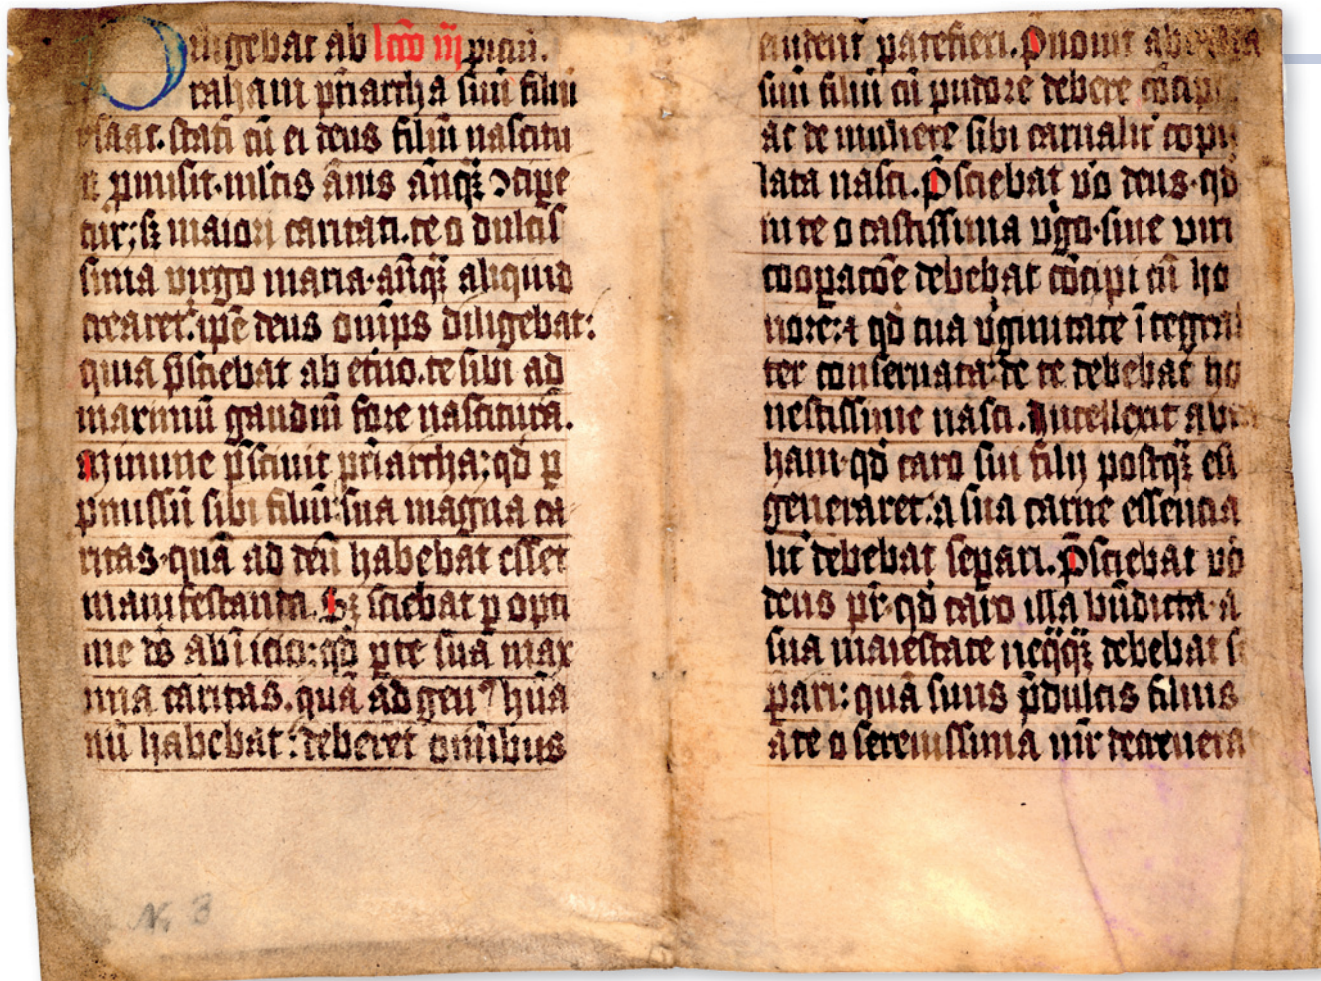 Diligebat ab lcio iij
raham pr̄iarcha suū filiū
ysaac. stati cū ei deus filiū nascitu
rū ꝓmisit. mltis ānis anq̄ꝫ ↄcipe
tur; sꝫ maiori caritati. te o dulcis
sima virgo maria. anq̄ꝫ aliquid
crearet. ip̄e deus om̄ips diligebat:
quia p̄sciebat ab et̄no. te sibi ad
maximū gaudiū fore nasciturā.
Minime p̄sciuit pr̄iarcha; qd̄ ꝑ
ꝓmissū sibi filiū: sua magna ca
ritas. quā ad deū habebat esset
manifestanda. Sꝫ sciebat ꝑ opti
me ds̄ ab īicio: qd̄ ꝑ te sua max
ima caritas. quā ad genꝰ hūa
nū habebat: deberet om̄ibus
N. 3
euident̄ patefieri. P̄nouit
suū filiū cū pudore debere cōcipi
ac de muliere sibi carnalit̄ copu
lata nasci. P̄sciebat v̄o deus. qd̄
in te o castissima v̄go. sine viri
coopac̄oe debebat cōcipi cū ho
nore: ⁊ qd̄ tua v̄ginitate ītegral
ter conseruata. de te debebat ho
nestissime nasci. Intellexit abra
ham. qd̄ caro sui filij postq̄ꝫ eā
generaret. a sua carne essencia
lit̄ debebat separi. P̄sciebat v̄o
deus pr̄. qd̄ caro illa bn̄dicta. a
sua maiestate neq̄q̄ꝫ debebat se
pari: quā suus p̄dulcis filius
a te o serenissima